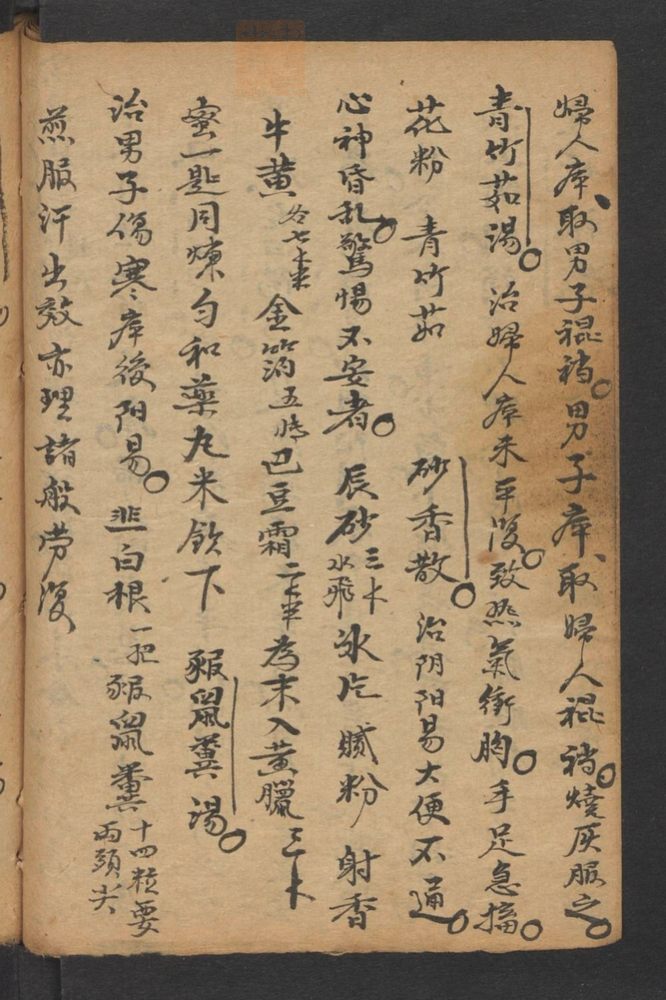 婦人病取男子裩襠男子病取婦人裩襠燒灰服之
青竹茹湯治婦人病未平復致熱氣衝胸手足急搐
花粉 青竹茹 砂香散治阴阳易大便不通
心神昏乱驚惕不安者 辰砂三卜水飛 氷片 膩粉 射香
牛黄各七卜半 金箔五片 巴豆霜二卜半 為末入黄臘三卜
蜜一匙同煉勻和藥丸米飲下 豭鼠糞湯
治男子傷寒病後阳易 韭白根一把 豭鼠糞十四粒要両頭尖
煎服汗出效亦理諸般劳復